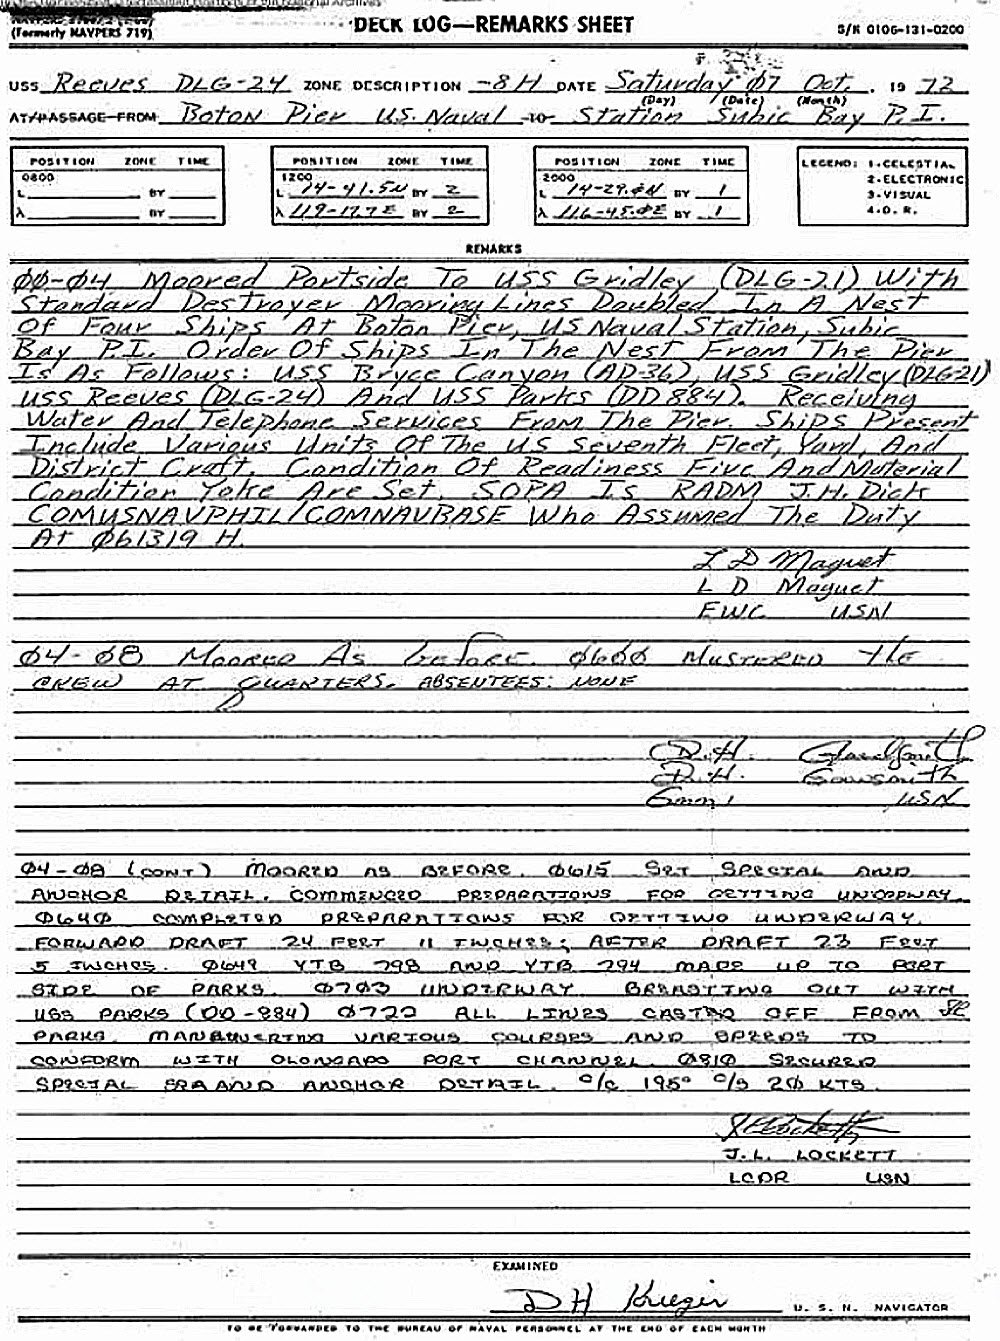 (Formerly NAVPERS 719)
DECK LOG—REMARKS SHEET
S/N 0106-131-0200
USS Reeves DLG-24 ZONE DESCRIPTION -8H DATE Saturday 07 Oct. 19 72
(Day) (Date) (Month)
AT/PASSAGE FROM Boton Pier U.S. Naval TO Station Subic Bay P.I.
POSITION ZONE TIME
0800
L BY
λ BY
POSITION ZONE TIME
1200
L 14-41.5N BY 2
λ 119-17.7E BY 2
POSITION ZONE TIME
2000
L 14-29.0N BY 1
λ 116-45.0E BY 1
LEGEND: 1-CELESTIAL
2-ELECTRONIC
3-VISUAL
4-D. R.
REMARKS
00-04 Moored Portside To USS Gridley (DLG-21) With
Standard Destroyer Mooring Lines Doubled In A Nest
Of Four Ships At Boton Pier, US Naval Station, Subic
Bay P.I. Order Of Ships In The Nest From The Pier
Is As Follows: USS Bryce Canyon (AD-36), USS Gridley (DLG21)
USS Reeves (DLG-24) And USS Parks (DD884). Receiving
Water And Telephone Services From The Pier. Ships Present
Include Various Units Of The US Seventh Fleet, Yard, And
District Craft. Condition Of Readiness Five And Material
Condition Yoke Are Set. SOPA Is RADM J.H. Dick
COMUSNAVPHIL/COMNAVBASE Who Assumed The Duty
At 061319 H.
L D Maquet
L D Maquet
EWC USN
04-08 Moored As before. 0600 Mustered the
CREW AT QUARTERS. ABSENTEES: NONE
D.H.
D.H.
USN
04-08 (CONT) MOORED AS BEFORE. 0615 SET SPECIAL AND
ANCHOR DETAIL. COMMENCED PREPARATIONS FOR GETTING UNDERWAY.
0640 COMPLETED PREPARATIONS FOR GETTING UNDERWAY.
FORWARD DRAFT 24 FEET 11 INCHES; AFTER DRAFT 23 FEET
5 INCHES. 0649 YTB 798 AND YTB 794 MADE UP TO PORT
SIDE OF PARKS. 0703 UNDERWAY BREASTING OUT WITH
USS PARKS (DD-884) 0722 ALL LINES CASTED OFF FROM
PARKS. MANEUVERING VARIOUS COURSES AND SPEEDS TO
CONFORM WITH OLONGAPO PORT CHANNEL. 0810 SECURED
SPECIAL SEA AND ANCHOR DETAIL. c/c 195° c/s 20 KTS.
J.L. LOCKETT
LCDR USN
EXAMINED
D H Krueger
U. S. N. NAVIGATOR
TO BE FORWARDED TO THE BUREAU OF NAVAL PERSONNEL AT THE END OF EACH MONTH